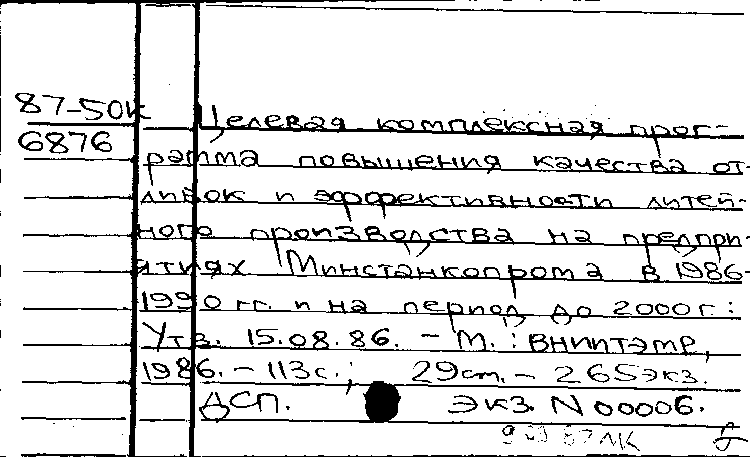 87-50К
6876
Целевая комплексная прог-
рамма повышения качества от-
ливок и эффективности литей-
ного производства на предпри-
ятиях Минстанкопрома в 1986-
1990 гг. и на период до 2000 г.:
Утв. 15.08.86. – М.: ВНИИТЭМР,
1986. – 113 с.; 29 см. – 265 экз.
ДСП. Экз. N 00006.